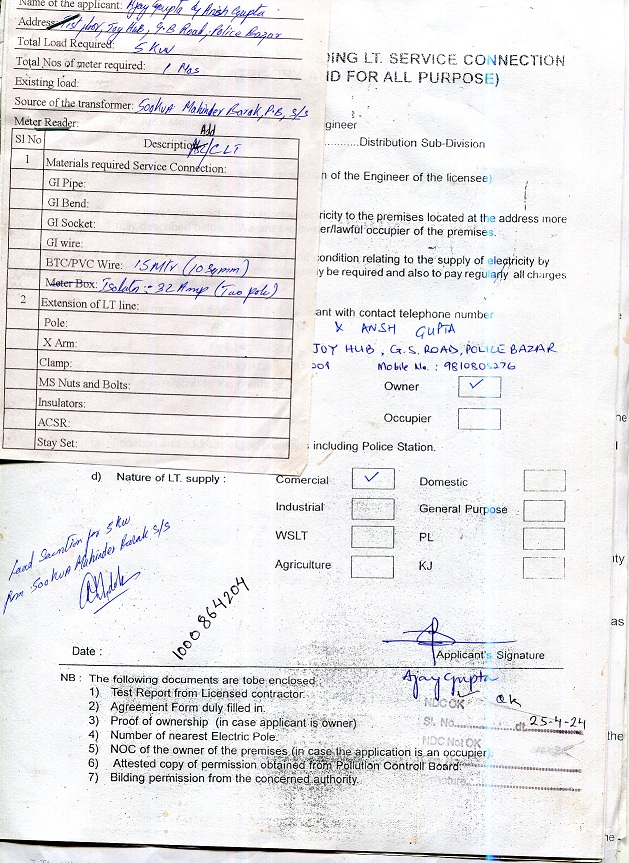 Name of the applicant: Ajay Gupta & Ansh Gupta
Address: 1st floor, Joy Hub, G.S Road, Police Bazar
Total Load Required: 5 KW
Total Nos of meter required: 1 Nos
Existing load:
Source of the transformer: Sookva Mahinder Barak, P.B, S/S
Meter Reader:
Add
Sl No Description CLT
1 Materials required Service Connection:
GI Pipe:
GI Bend:
GI Socket:
GI wire:
BTC/PVC Wire: 15 Mtr (10 sqmm)
Meter Box: Isolator - 32 Amp (Two pole)
2 Extension of LT line:
Pole:
X Arm:
Clamp:
MS Nuts and Bolts:
Insulators:
ACSR:
Stay Set:
DING LT. SERVICE CONNECTION
ND FOR ALL PURPOSE)
gineer
..............Distribution Sub-Division
n of the Engineer of the licensee)
ricity to the premises located at the address more
er/lawful occupier of the premises.
condition relating to the supply of electricity by
y be required and also to pay regularly all charges
ant with contact telephone number
& ANSH GUPTA
JOY HUB, G.S. ROAD, POLICE BAZAR
001 Mobile No.: 9810805276
Owner ✓
Occupier
including Police Station.
d) Nature of LT. supply : Comercial ✓ Domestic
Industrial General Purpose
WSLT PL
Agriculture KJ
Load Sanction for 5 KW
from Sookva Mahinder Barak S/S
1000 864204
Date :
Applicant's Signature
Ajay Gupta
NB : The following documents are tobe enclosed
1) Test Report from Licensed contractor.
2) Agreement Form duly filled in.
3) Proof of ownership (in case applicant is owner)
4) Number of nearest Electric Pole.
5) NOC of the owner of the premises (in case the application is an occupier)
6) Attested copy of permission obtained from Pollution Controll Board.
7) Bilding permission from the concerned authority.
NDC OK OK
Sl. No. dt 25-4-24
NDC Not OK